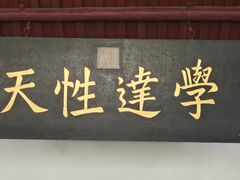 學達性天